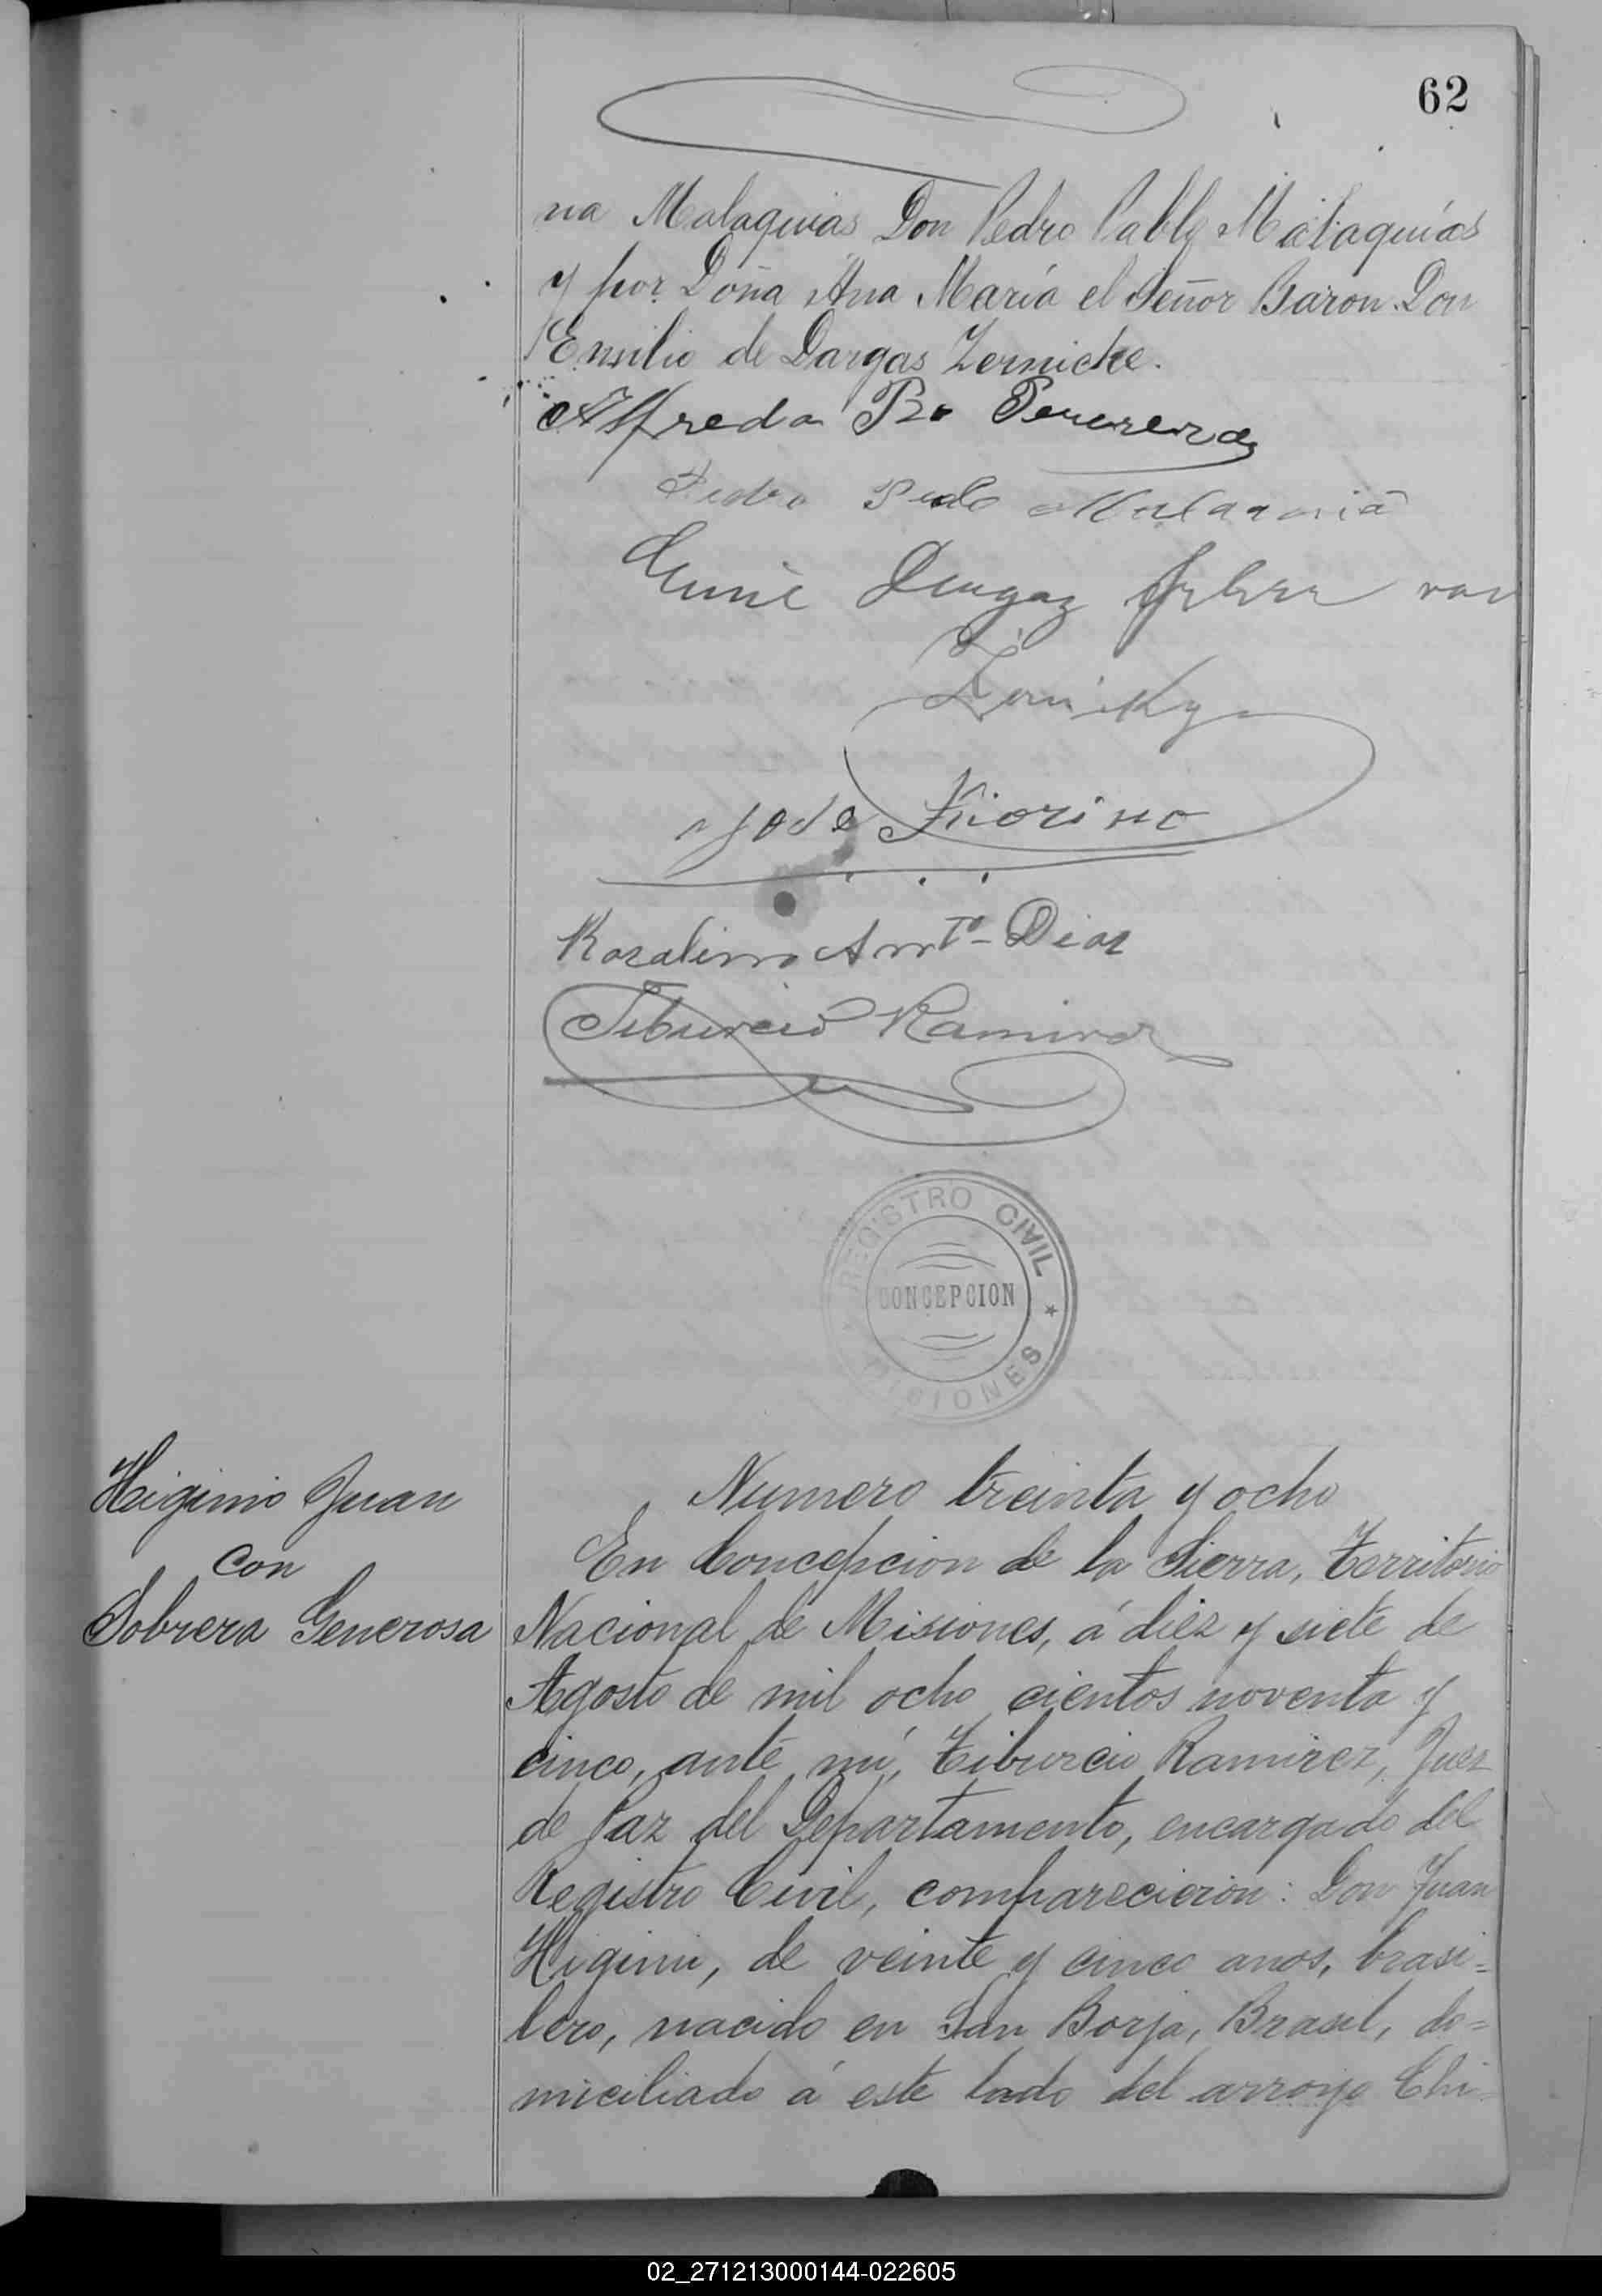 62
na Malaquias Don Pedro Pablo Malaquías
y por Doña Ana María el Señor Baron Don
Emilio de Dargas Zernicke.
Alfredo
Pedro
Emil
José Fiorino
Rosalino Ant<sup>o</sup> - Dias
Tiburcio Ramirez
REGISTRO CIVIL
CONCEPCION
MISIONES
Higinio Juan
con
Sobrera Generosa
Numero treinta y ocho
En Concepcion de la Sierra, Territorio
Nacional de Misiones, á diez y siete de
Agosto de mil ocho cientos noventa y
cinco, ante mí, Tiburcio Ramirez, Juez
de Paz del Departamento, encargado del
Registro Civil, comparecieron: Don Juan
Higinio, de veinte y cinco anos, brasi=
lero, nacido en San Borja, Brasil, do=
miciliado á este lado del arroyo Chi=
02_271213000144-022605